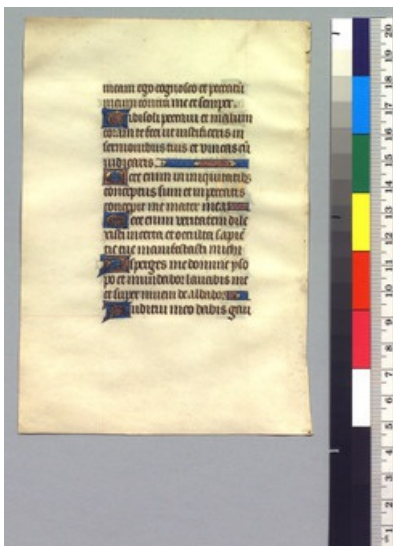 meam ego cognosco et peccatū
meum contra me est semper.
Tibi soli peccavi et malum
coram te feci ut iustificeris in
sermonibus tuis et vincas cū
iudicaris.
Ecce enim in iniquitatibus
conceptus sum et in peccatis
concepit me mater mea
Ecce enim veritatem dile
xisti incerta et occulta sapiē
tie tue manifestasti michi
Asperges me domine yso
po et mundabor lavabis me
et super nivem dealbabor
Auditui meo dabis gau
20
19
18
17
16
15
14
13
12
11
10
9
8
7
6
5
4
3
2
1